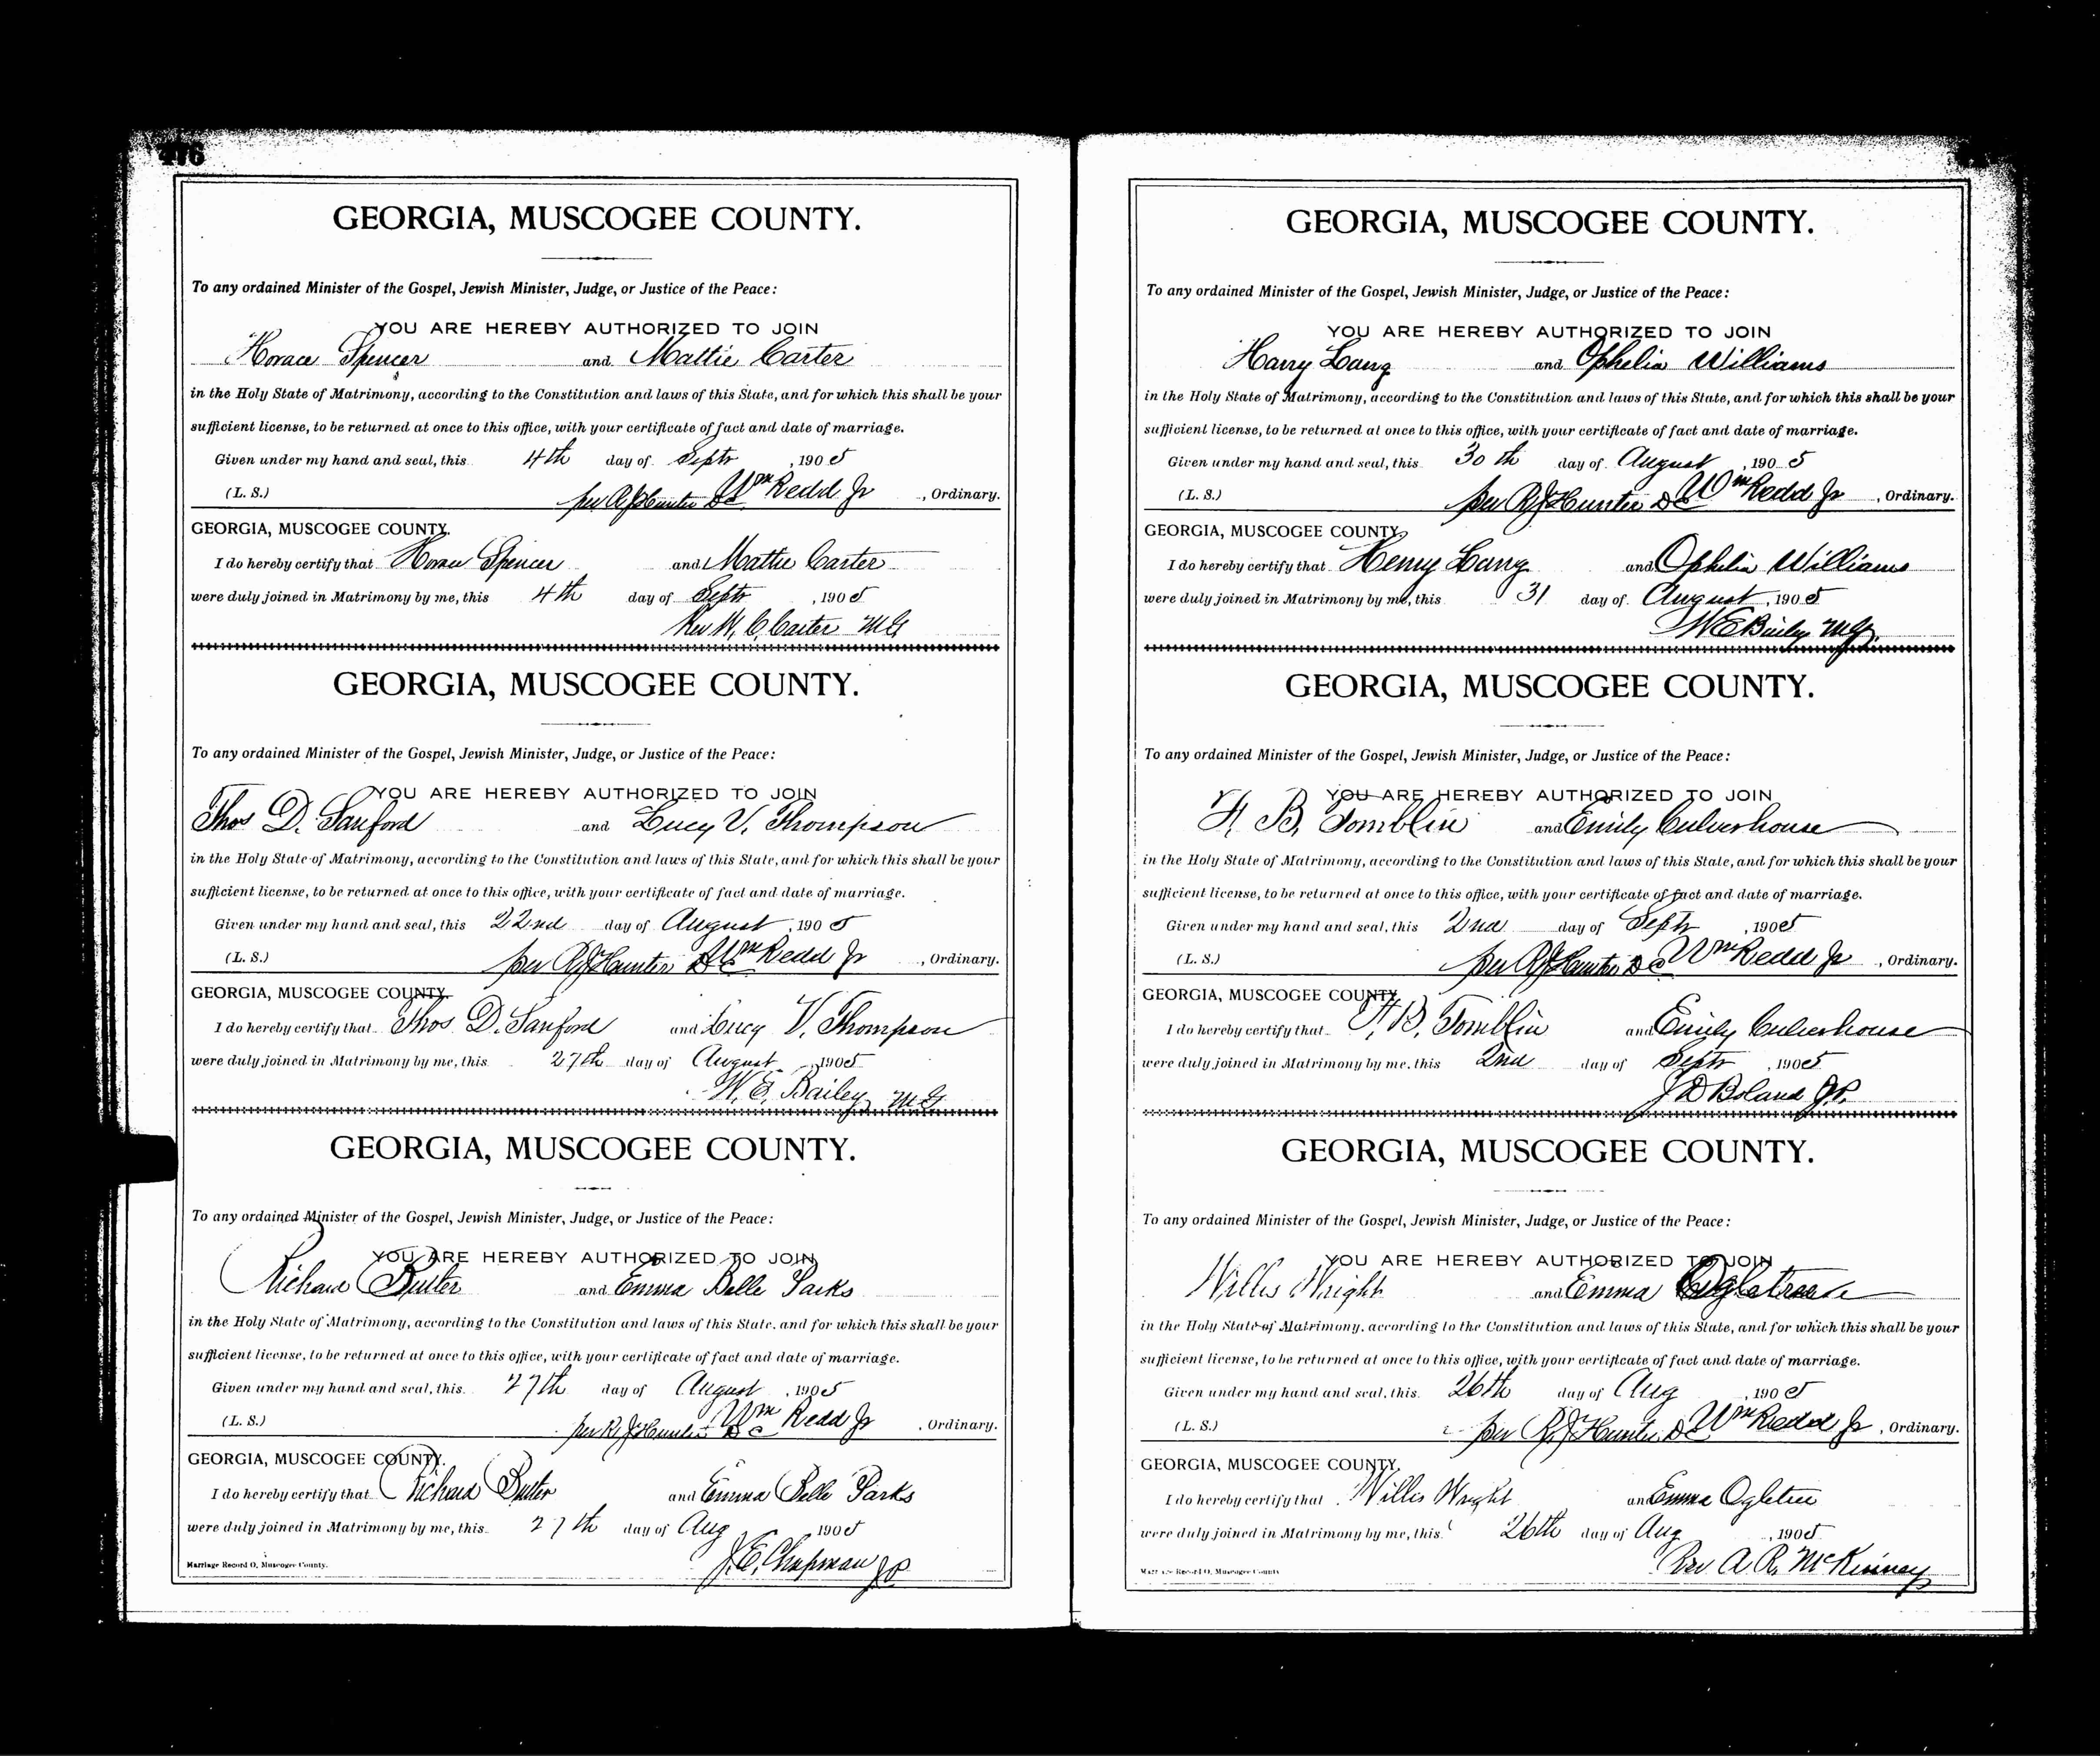 476
GEORGIA, MUSCOGEE COUNTY.
To any ordained Minister of the Gospel, Jewish Minister, Judge, or Justice of the Peace:
YOU ARE HEREBY AUTHORIZED TO JOIN
Horace Spencer and Mattie Carter
in the Holy State of Matrimony, according to the Constitution and laws of this State, and for which this shall be your
sufficient license, to be returned at once to this office, with your certificate of fact and date of marriage.
Given under my hand and seal, this 4th day of Septr, 1905
(L. S.) per R J Hunter DC Wm Redd Jr, Ordinary.
GEORGIA, MUSCOGEE COUNTY.
I do hereby certify that Horace Spencer and Mattie Carter
were duly joined in Matrimony by me, this 4th day of Septr, 1905
Rev W. C. Carter MG
GEORGIA, MUSCOGEE COUNTY.
To any ordained Minister of the Gospel, Jewish Minister, Judge, or Justice of the Peace:
YOU ARE HEREBY AUTHORIZED TO JOIN
Thos D. Sanford and Lucy V. Thompson
in the Holy State of Matrimony, according to the Constitution and laws of this State, and for which this shall be your
sufficient license, to be returned at once to this office, with your certificate of fact and date of marriage.
Given under my hand and seal, this 22nd day of August, 1905
(L. S.) per R J Hunter DC Wm Redd Jr, Ordinary.
GEORGIA, MUSCOGEE COUNTY.
I do hereby certify that Thos D. Sanford and Lucy V. Thompson
were duly joined in Matrimony by me, this 27th day of August, 1905
W. E. Bailey MG
GEORGIA, MUSCOGEE COUNTY.
To any ordained Minister of the Gospel, Jewish Minister, Judge, or Justice of the Peace:
YOU ARE HEREBY AUTHORIZED TO JOIN
Richard Butler and Emma Belle Parks
in the Holy State of Matrimony, according to the Constitution and laws of this State, and for which this shall be your
sufficient license, to be returned at once to this office, with your certificate of fact and date of marriage.
Given under my hand and seal, this 27th day of August, 1905
(L. S.) per R J Hunter DC Wm Redd Jr, Ordinary.
GEORGIA, MUSCOGEE COUNTY.
I do hereby certify that Richard Butler and Emma Belle Parks
were duly joined in Matrimony by me, this 27th day of Aug, 1905
J. E. Chapman JP
Marriage Record O, Muscogee County.
GEORGIA, MUSCOGEE COUNTY.
To any ordained Minister of the Gospel, Jewish Minister, Judge, or Justice of the Peace:
YOU ARE HEREBY AUTHORIZED TO JOIN
Harry Lang and Ophelia Williams
in the Holy State of Matrimony, according to the Constitution and laws of this State, and for which this shall be your
sufficient license, to be returned at once to this office, with your certificate of fact and date of marriage.
Given under my hand and seal, this 30th day of August, 1905
(L. S.) per R J Hunter DC Wm Redd Jr, Ordinary.
GEORGIA, MUSCOGEE COUNTY.
I do hereby certify that Henry Lang and Ophelia Williams
were duly joined in Matrimony by me, this 31 day of August, 1905
W E Bailey MG.
GEORGIA, MUSCOGEE COUNTY.
To any ordained Minister of the Gospel, Jewish Minister, Judge, or Justice of the Peace:
YOU ARE HEREBY AUTHORIZED TO JOIN
B. Tomblin and Emily Culverhouse
in the Holy State of Matrimony, according to the Constitution and laws of this State, and for which this shall be your
sufficient license, to be returned at once to this office, with your certificate of fact and date of marriage.
Given under my hand and seal, this 2nd day of Septr, 1905
(L. S.) per R J Hunter DC Wm Redd Jr, Ordinary.
GEORGIA, MUSCOGEE COUNTY.
I do hereby certify that B. Tomblin and Emily Culverhouse
were duly joined in Matrimony by me, this 2nd day of Septr, 1905
J D Boland J.P.
GEORGIA, MUSCOGEE COUNTY.
To any ordained Minister of the Gospel, Jewish Minister, Judge, or Justice of the Peace:
YOU ARE HEREBY AUTHORIZED TO JOIN
Willis Wright and Emma Ogletree
in the Holy State of Matrimony, according to the Constitution and laws of this State, and for which this shall be your
sufficient license, to be returned at once to this office, with your certificate of fact and date of marriage.
Given under my hand and seal, this 26th day of Aug, 1905
(L. S.) per R J Hunter DC Wm Redd Jr, Ordinary.
GEORGIA, MUSCOGEE COUNTY.
I do hereby certify that Willis Wright and Emma Ogletree
were duly joined in Matrimony by me, this 26th day of Aug, 1905
Rev A. R. McKinney
Marriage Record O, Muscogee County